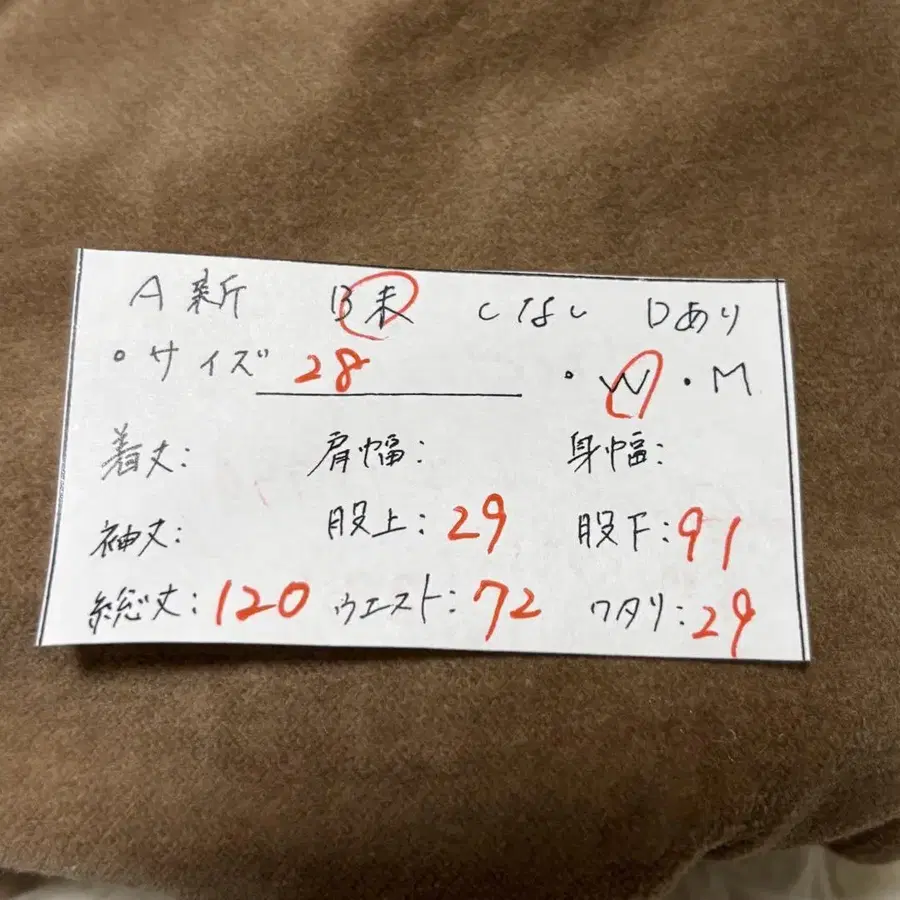 A 新 B 未 C なし D あり
・サイズ 28 ・W ・M
着丈: 肩幅: 身幅:
袖丈: 股上: 29 股下: 91
総丈: 120 ウエスト: 72 ワタリ: 29